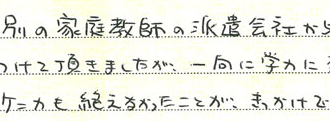 別の家庭教師の派遣会社から
つけて頂きましたが、一向に学力に
ケンカも絶えなかったことが、きっかけで